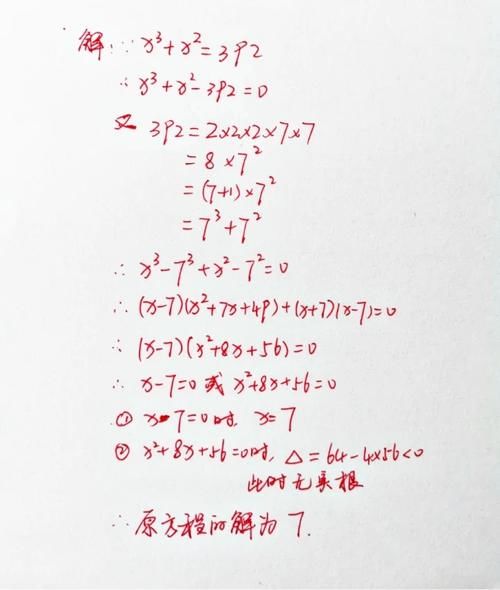 解:∵x³+x²=392
∴x³+x²-392=0
又 392=2×2×2×7×7
=8×7²
=(7+1)×7²
=7³+7²
∴x³-7³+x²-7²=0
∴(x-7)(x²+7x+49)+(x+7)(x-7)=0
∴(x-7)(x²+8x+56)=0
∴x-7=0 或 x²+8x+56=0
① x-7=0时, x=7
② x²+8x+56=0时, △=64-4×56<0
此时无实根
∴原方程的解为 7.